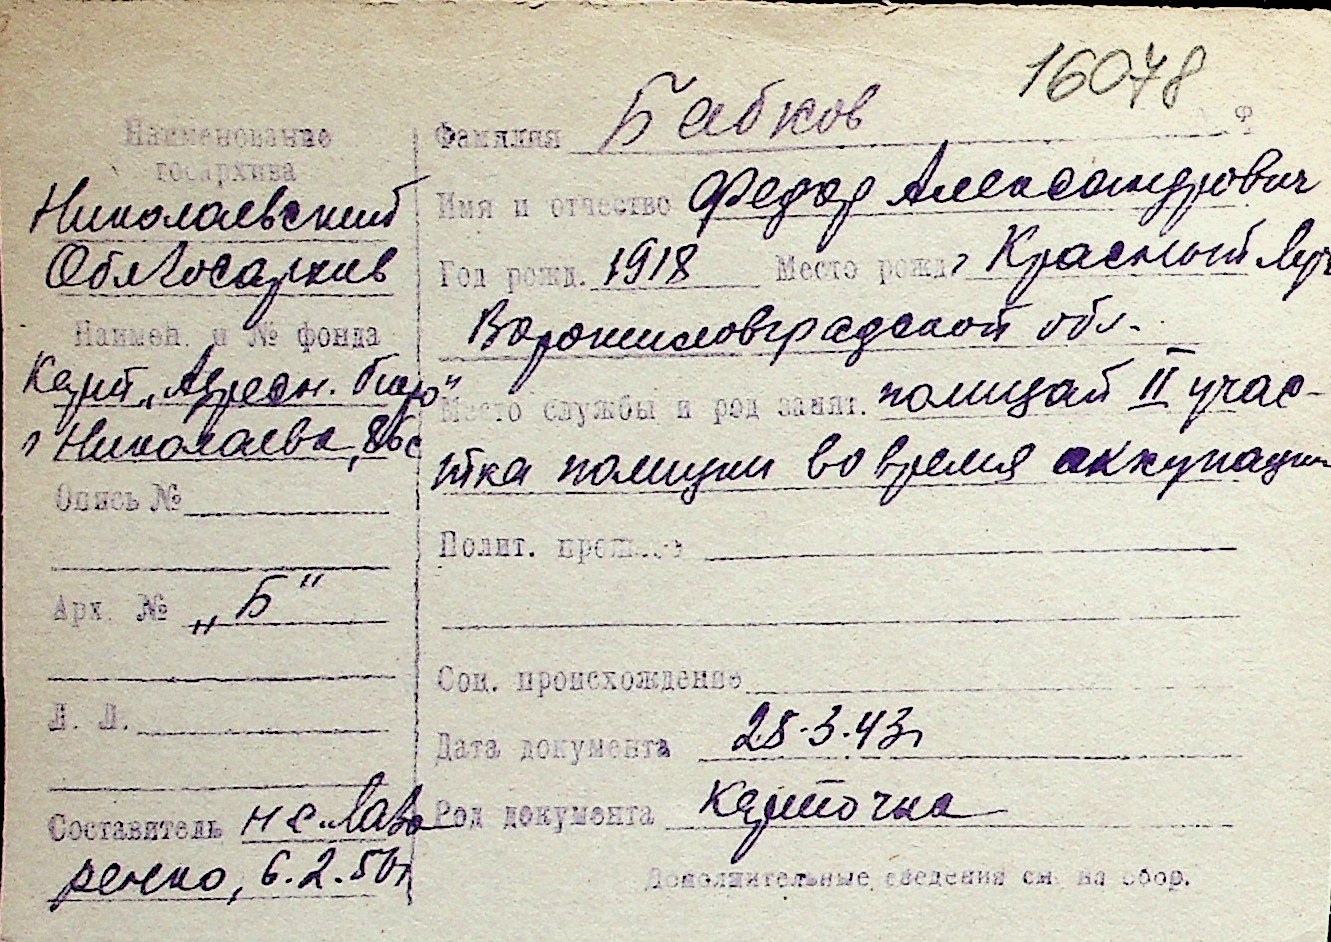 16078
Наименование
госархива
Николаевский
Облгосархив
Наимен. и № фонда
Карт. „Адресн. бюро"
г Николаева,
Опись №
Арх. № „Б"
Л. Л.
Составитель
ренко, 6.2.50г
Фамилия Бабков
Имя и отчество Федор Александрович
Год рожд. 1918 Место рожд. г Красный Луч
Ворошиловградской обл.
Место службы и род занят. полицай II учас-
тка полиции во время аккупации
Полит. прошлое
Соц. происхождение
Дата документа 28.3.43г
Род документа карточка
Дополнительные сведения см. на обор.